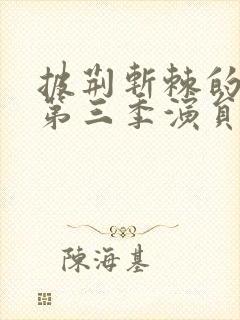 披荊斬棘的
第三季演員
陳海基